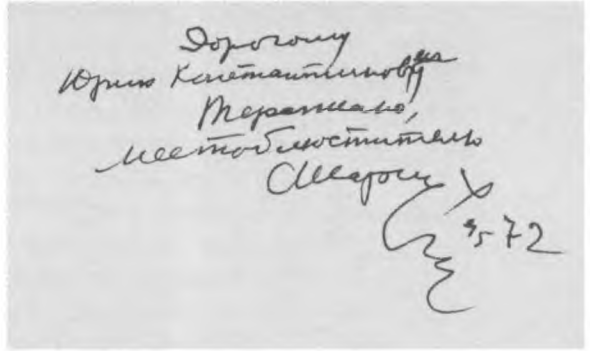 Дорогому
Юрию Константиновичу
Терапиано,
местоблюстителю
72